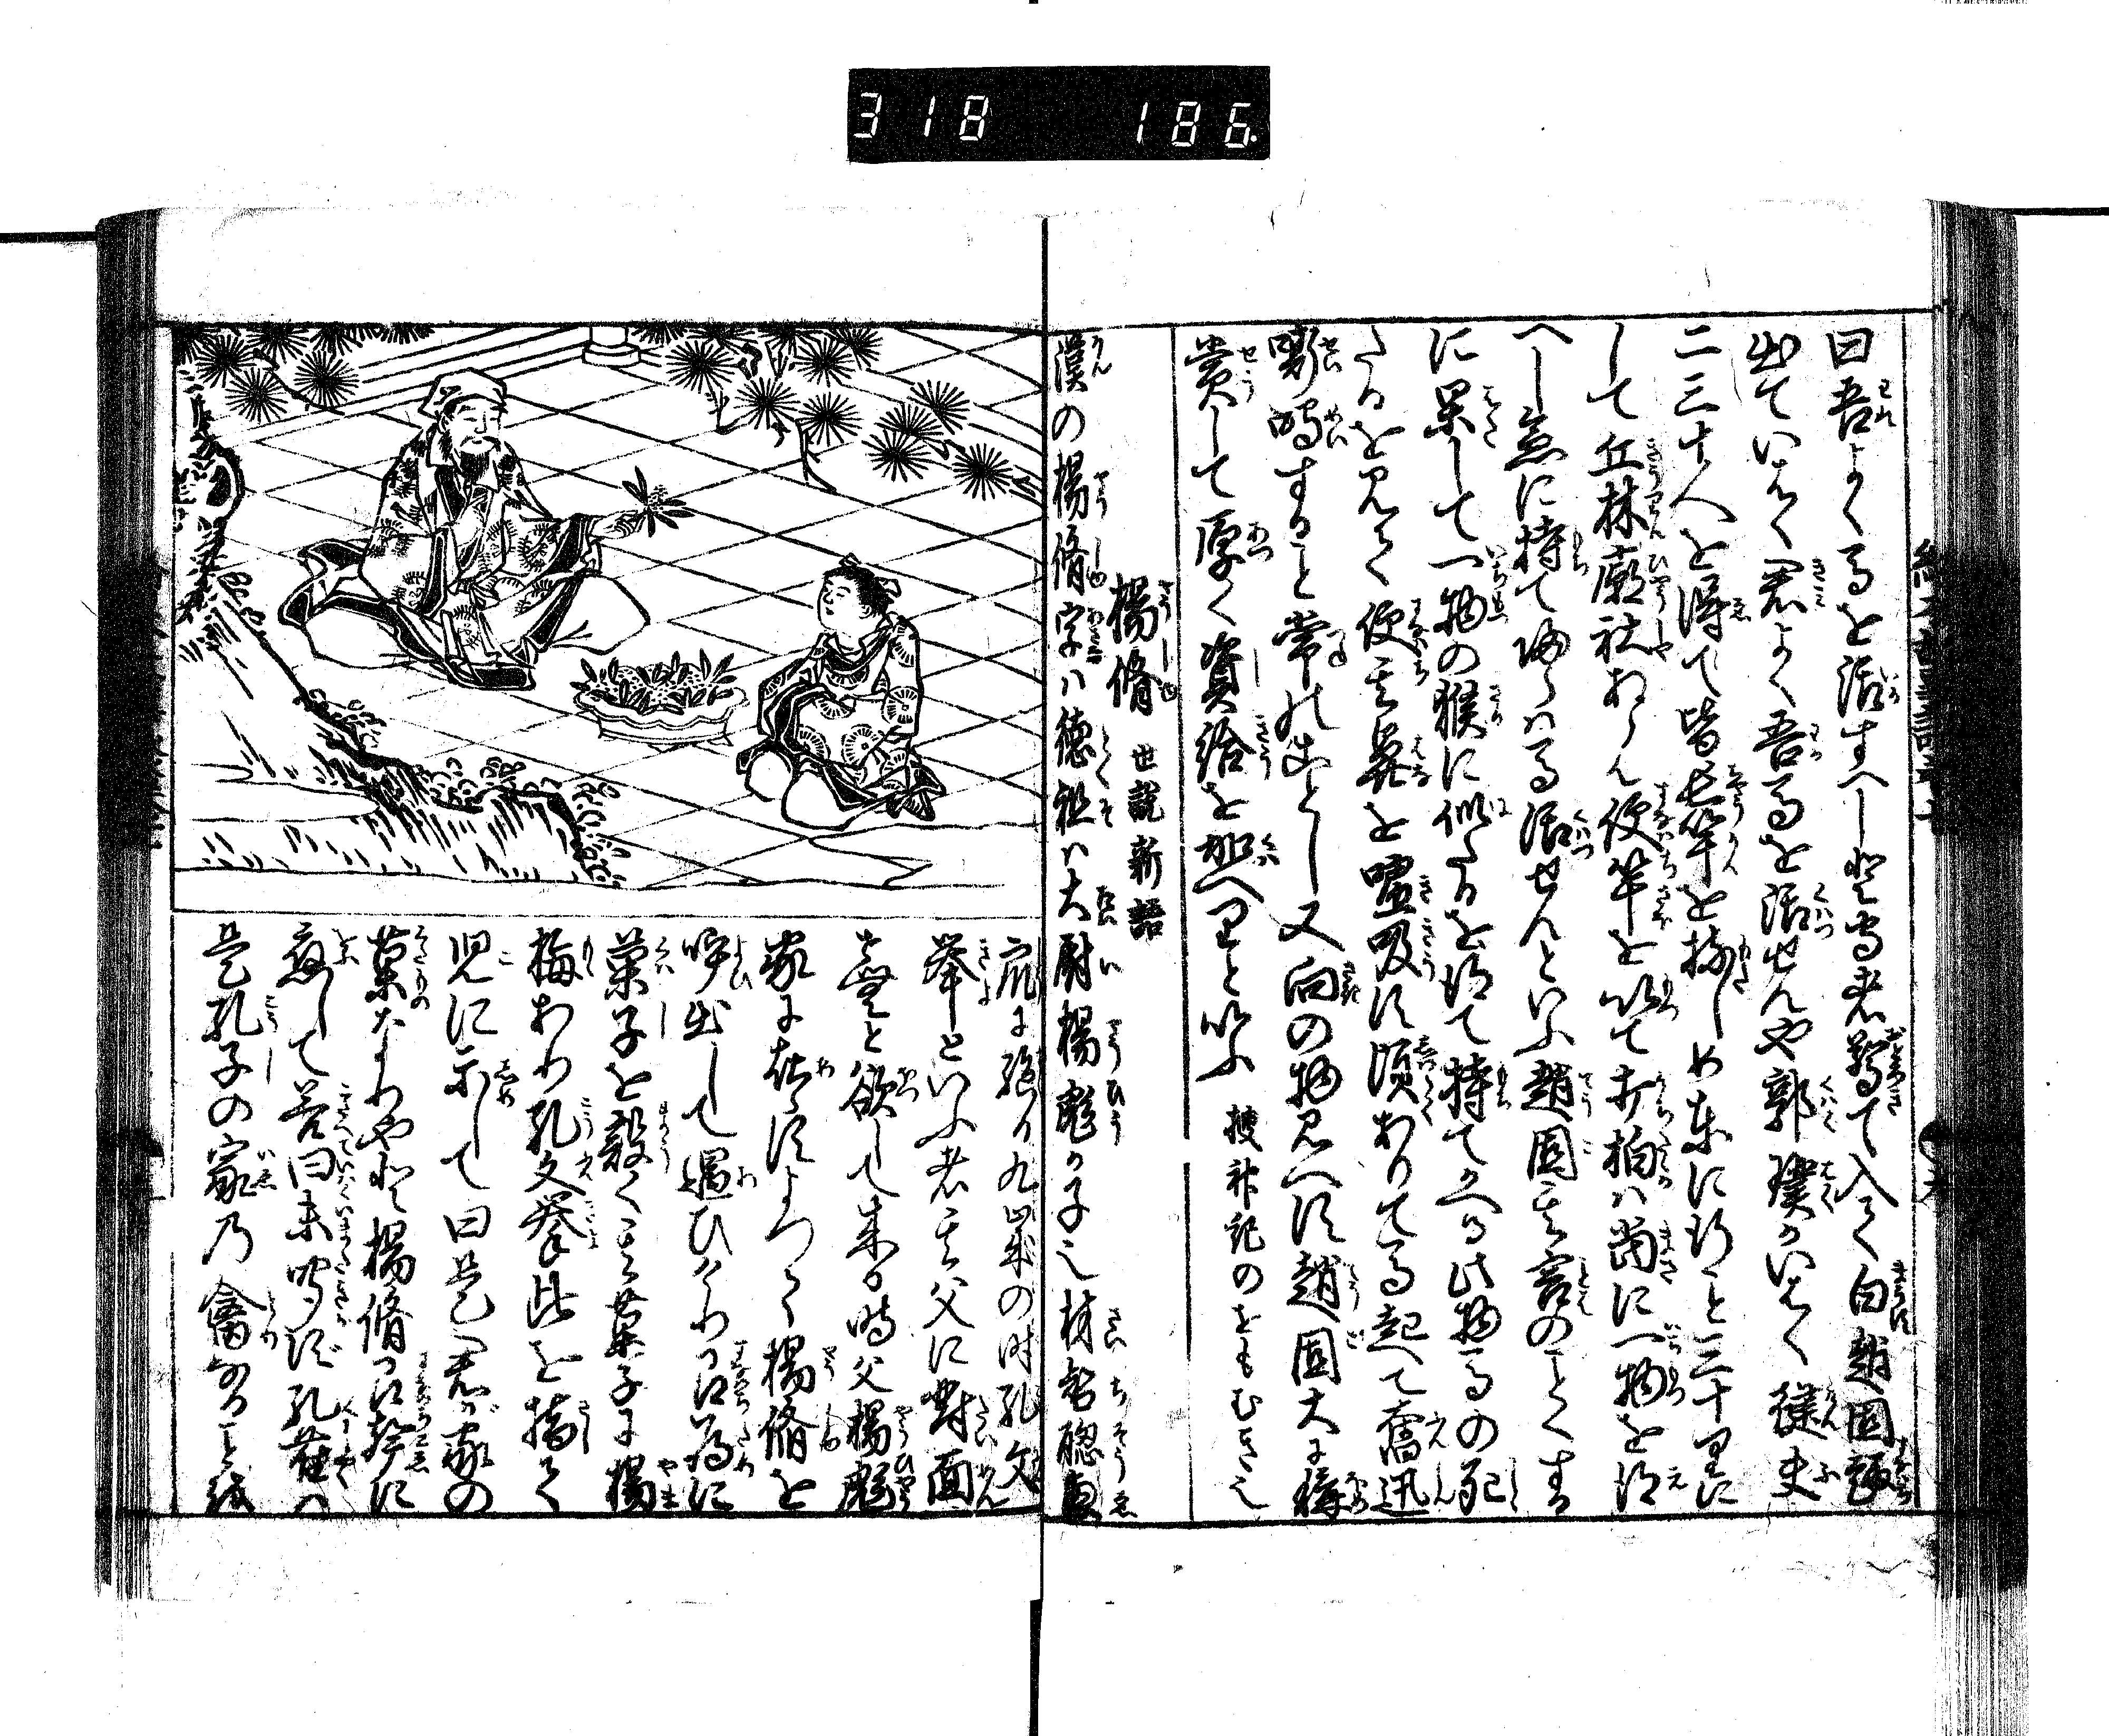 318 186
曰吾よく馬を活すへしと守者驚て入て白趙固趨
出ていはく君よく吾馬を活せんや郭璞かいはく徒夫
二三十人を得て皆長竿を持しめ東に行こと三十里に
して丘林廟社あらん便竿を以て打拍は當に一物を得
へし急に持て帰らは馬活せんといふ趙固其言のことくする
に果して一物の猴に似たるを得て持てかへる此物馬の死
たるを見て便其鼻を嘘吸に頃ありて馬起て奮迅
嘶鳴すること常のことし又向の物見へす趙固大に
賞して厚く資給を加へりと以ふ 捜神記のをもむき也
楊脩 世説新語
漢の楊脩字は徳祖は大尉楊彪か子也材智聡恵
庶に絶る九歳の時孔文
挙といふ者其父に對面
せむと欲して来る時父楊彪
家に在によつて楊脩を
呼出して遇ひけりつゐ為に
菓子を設く其菓子に楊
梅あり孔文挙此を指て
児に示して曰是君が家の
菓なりやと楊脩つゐ聲に
應して答曰未聞に孔雀は
是孔子の家乃禽なることを